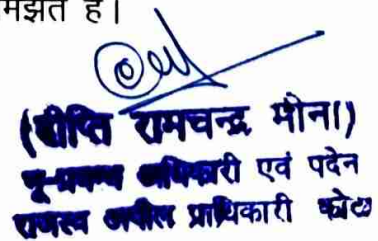 मझते हैं।
(दीप्ति रामचन्द्र मीना)
भू-प्रबन्ध अधिकारी एवं पदेन
राजस्व अपील प्राधिकारी कोटा